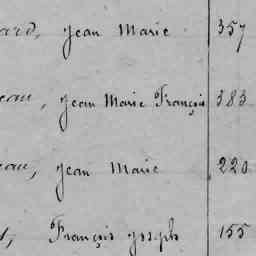 ard, Jean Marie 357
eau, Jean Marie François 383
eau, Jean Marie 220
t, François Joseph 155